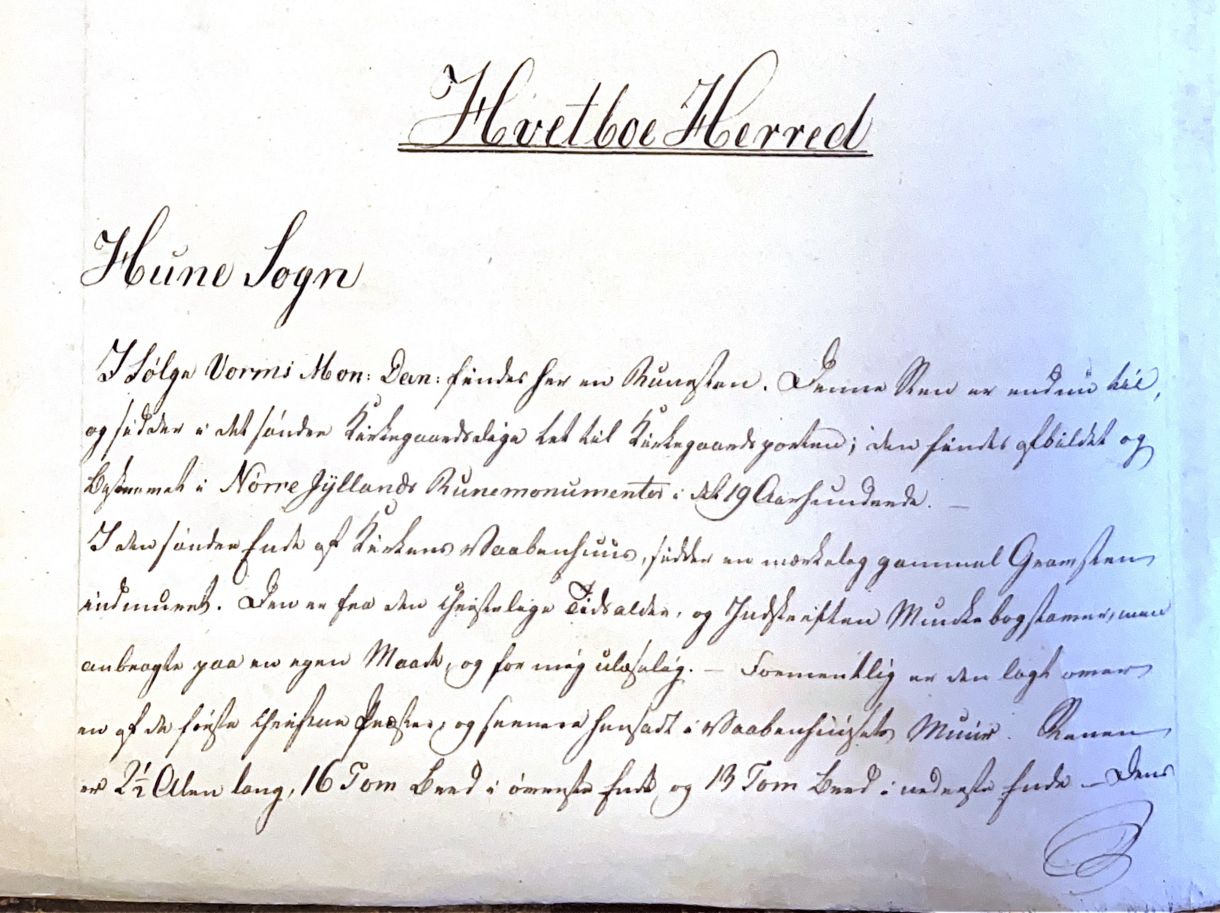 Hvetboe Herred
Hune Sogn
I Følge Vormi Mon: Dan: findes her en Runesten. Denne Sten er endnu til,
og sidder i det søndre Kirkegaardsdige tet til Kirkegaardsporten; den findes afbildet og
beskrevet i Nørre Jyllands Runemonumenter i det 19 Aarhundrede. —
I den søndre Ende af Kirkens Vaabenhuus, sidder en mærkelig gammel Gravsten
indmuret. Den er fra den christelige Tidsalder, og Indskriften Munkebogstaver, men
anbragte paa en egen Maade, og for mig ulæselig. — Formentlig er den lagt over
en af de første christne Præster, og senere hensadt i Vaabenhuusets Muur. Stenen
er 2½ Alen lang, 16 Tom bred i øverste Ende, og 13 Tom bred i nederste Ende — Dens